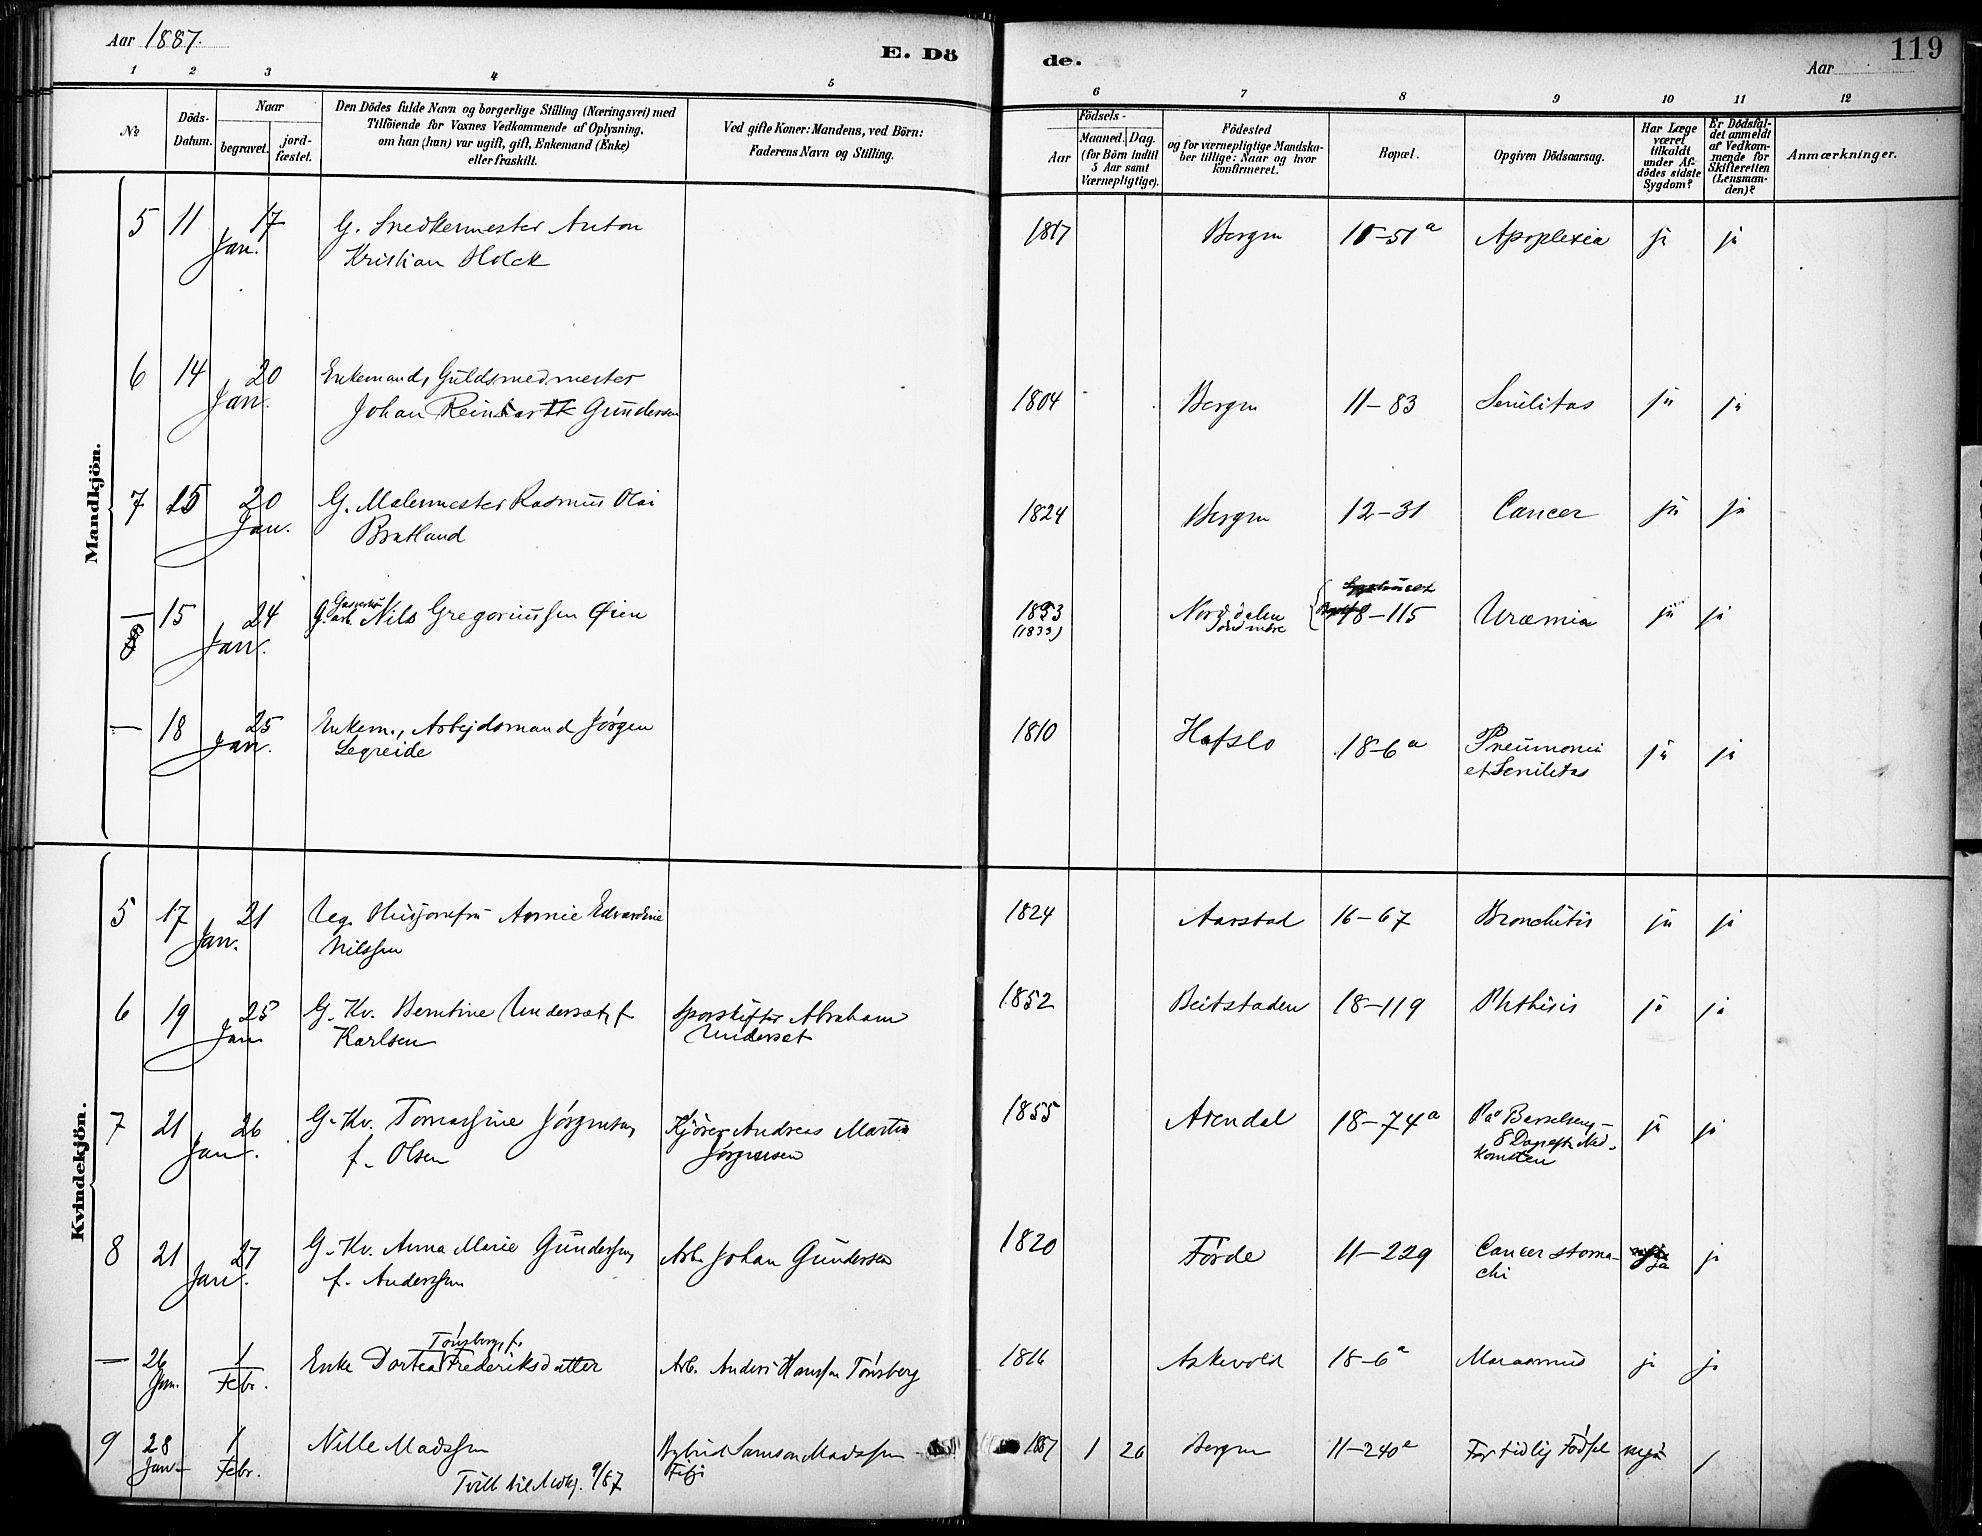 Aar 1887.
E. Dö
de.
Aar
119
1 2 3 4 5 6 7 8 9 10 11 12
№
Döds-Datum.
Naar
begravet.
jord-fæstet.
Den Dödes fulde Navn og borgerlige Stilling (Næringsvei) med
Tilföiende for Voxnes Vedkommende af Oplysning,
om han (hun) var ugift, gift, Enkemand (Enke)
eller fraskilt.
Ved gifte Koner: Mandens, ved Börn:
Faderens Navn og Stilling.
Födsels-
Aar
Maaned. Dag.
(for Börn indtil
5 Aar samt
Værnepligtige).
Födested
og for værnepligtige Mandska-
ber tillige: Naar og hvor
konfirmeret.
Bopæl.
Opgiven Dödsaarsag.
Har Læge
været
tilkaldt
under Af-
dödes sidste
Sygdom?
Er Dödsfal-
det anmeldt
af Vedkom-
mende for
Skifteretten
(Lensman-
den)?
Anmærkninger.
Mandkjön.
5 11 17 G. Snedkermester Anton 1817 Bergen 11-51a Apoplexia ja ja
Jan. Kristian Holck
6 14 20 Enkemand, Guldsmedmester
Jan. Johan Reinhardt Gundersen 1804 Bergen 11-83 Senilitas ja ja
7 15 20 G. Malermester Rasmus Olai 1824 Bergen 12-31 Cancer ja ja
Jan. Bratland
— 15 24 G. arb. Nils Gregoriussen Øien 1833 Norddalen 18-115 Uræmia ja ja
Jan. (1833) Söndmöre
— 18 25 Enkem., Arbejdsmand Jörgen 1810 Hafslo 18-6a Pneumoni ja ja
Jan. Legreide et Senilitas
Kvindekjön.
5 17 21 Ug. Husjomfru Annie Edvardine 1824 Aarstad 16-67 Bronchitis ja ja
Jan. Nilssen
6 19 25 G. Kv. Berntine Underset, f. Sporskifter Abraham 1852 Beitstaden 18-119 Phthisis ja ja
Jan. Karlsen Underset
7 21 26 G. Kv. Tomassine Jörgensen, Kjörer Andreas Martin 1855 Arendal 18-74a Paa Barselseng - ja ja
Jan. f. Olsen Jörgensen 8 Dage eft. Ned-
komsten
8 21 27 G. Kv. Anna Marie Gundersen, Arb. Johan Gundersen 1820 Förde 11-229 Cancer stoma- ja ja
Jan. f. Anderssen chi
Tönsberg, f.
— 26 1 Enke Dortea Frederiksdatter Arb. Anders Hanssen Tönsberg 1816 Askevold 18-6a Marasmus ja ja
Jan. Febr.
9 28 1 Nille Madssen Samson Madssen 1887 1 26 Bergen 11-240a For tidlig Födsel /
Jan. Febr. Tvill. til Mdkj. 9/87